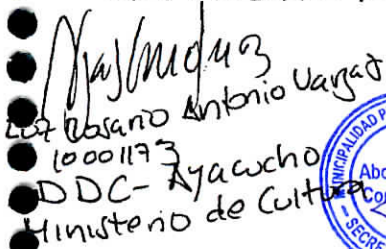 Luz Rosario Antonio Vargas
10001173
DDC- Ayacucho
Ministerio de Cultura
MUNICIPALIDAD P
Abo
Co
SECRE